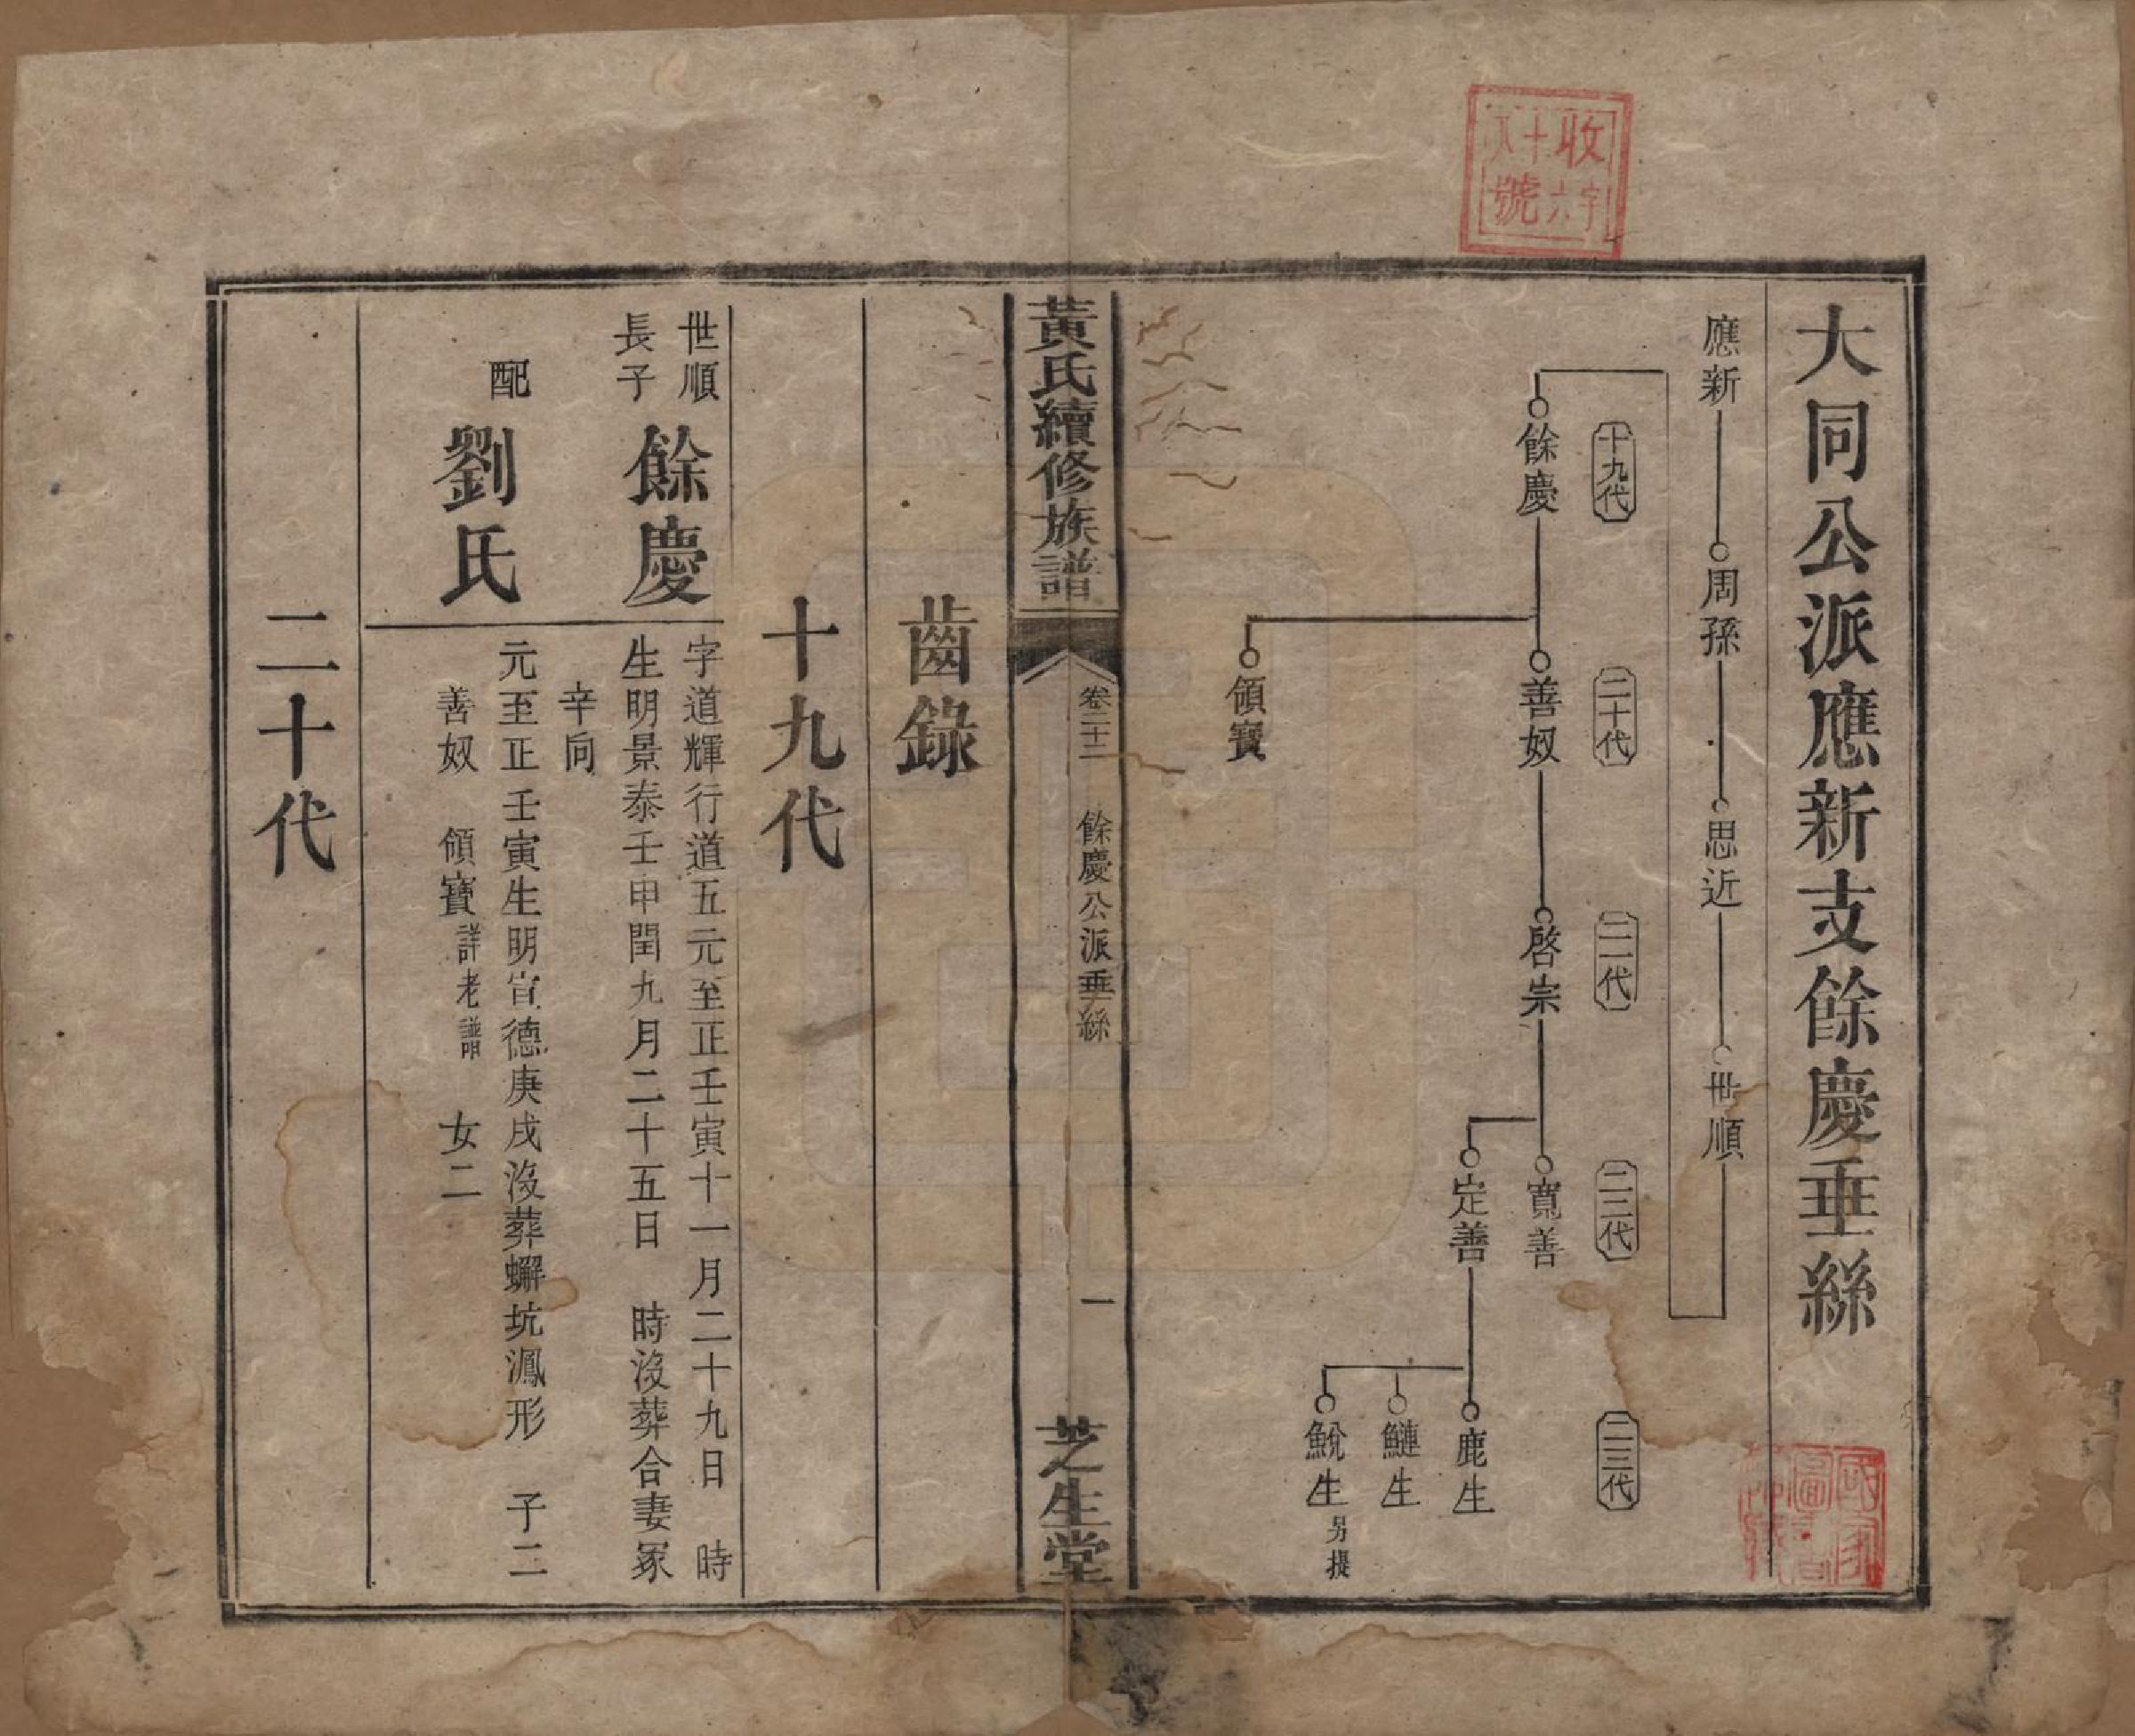 收
十
八
字
六
號
大同公派應新支餘慶垂絲
應新
周孫
思近
世順
十九代
二十代
二一代
二二代
二三代
餘慶
善奴
啓宗
寬善
領寶
定善
鹿生
鰱生
鮵生
另提
黃氏續修族譜
卷二十二
餘慶公派垂絲
一
芝生堂
齒錄
十九代
世順
長子
餘慶
字道輝行道五元至正壬寅十一月二十九日 時
生明景泰壬申閏九月二十五日 時沒葬合妻冢
辛向
配
劉氏
元至正壬寅生明宣德庚戌沒葬蠏坑鳳形 子二
善奴 領寶詳老譜 女二
二十代